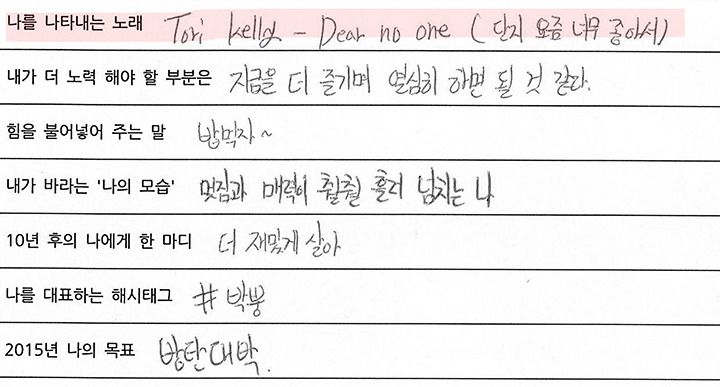 나를 나타내는 노래 Tori Kelly - Dear no one (단지 요즘 너무 좋아서)
내가 더 노력 해야 할 부분은 지금을 더 즐기며 열심히 하면 될 것 같다.
힘을 불어넣어 주는 말 밥먹자~
내가 바라는 '나의 모습' 멋짐과 매력이 췰췰 흘러 넘치는 나
10년 후의 나에게 한 마디 더 재밌게 살아
나를 대표하는 해시태그 #박뿡
2015년 나의 목표 방탄대박.